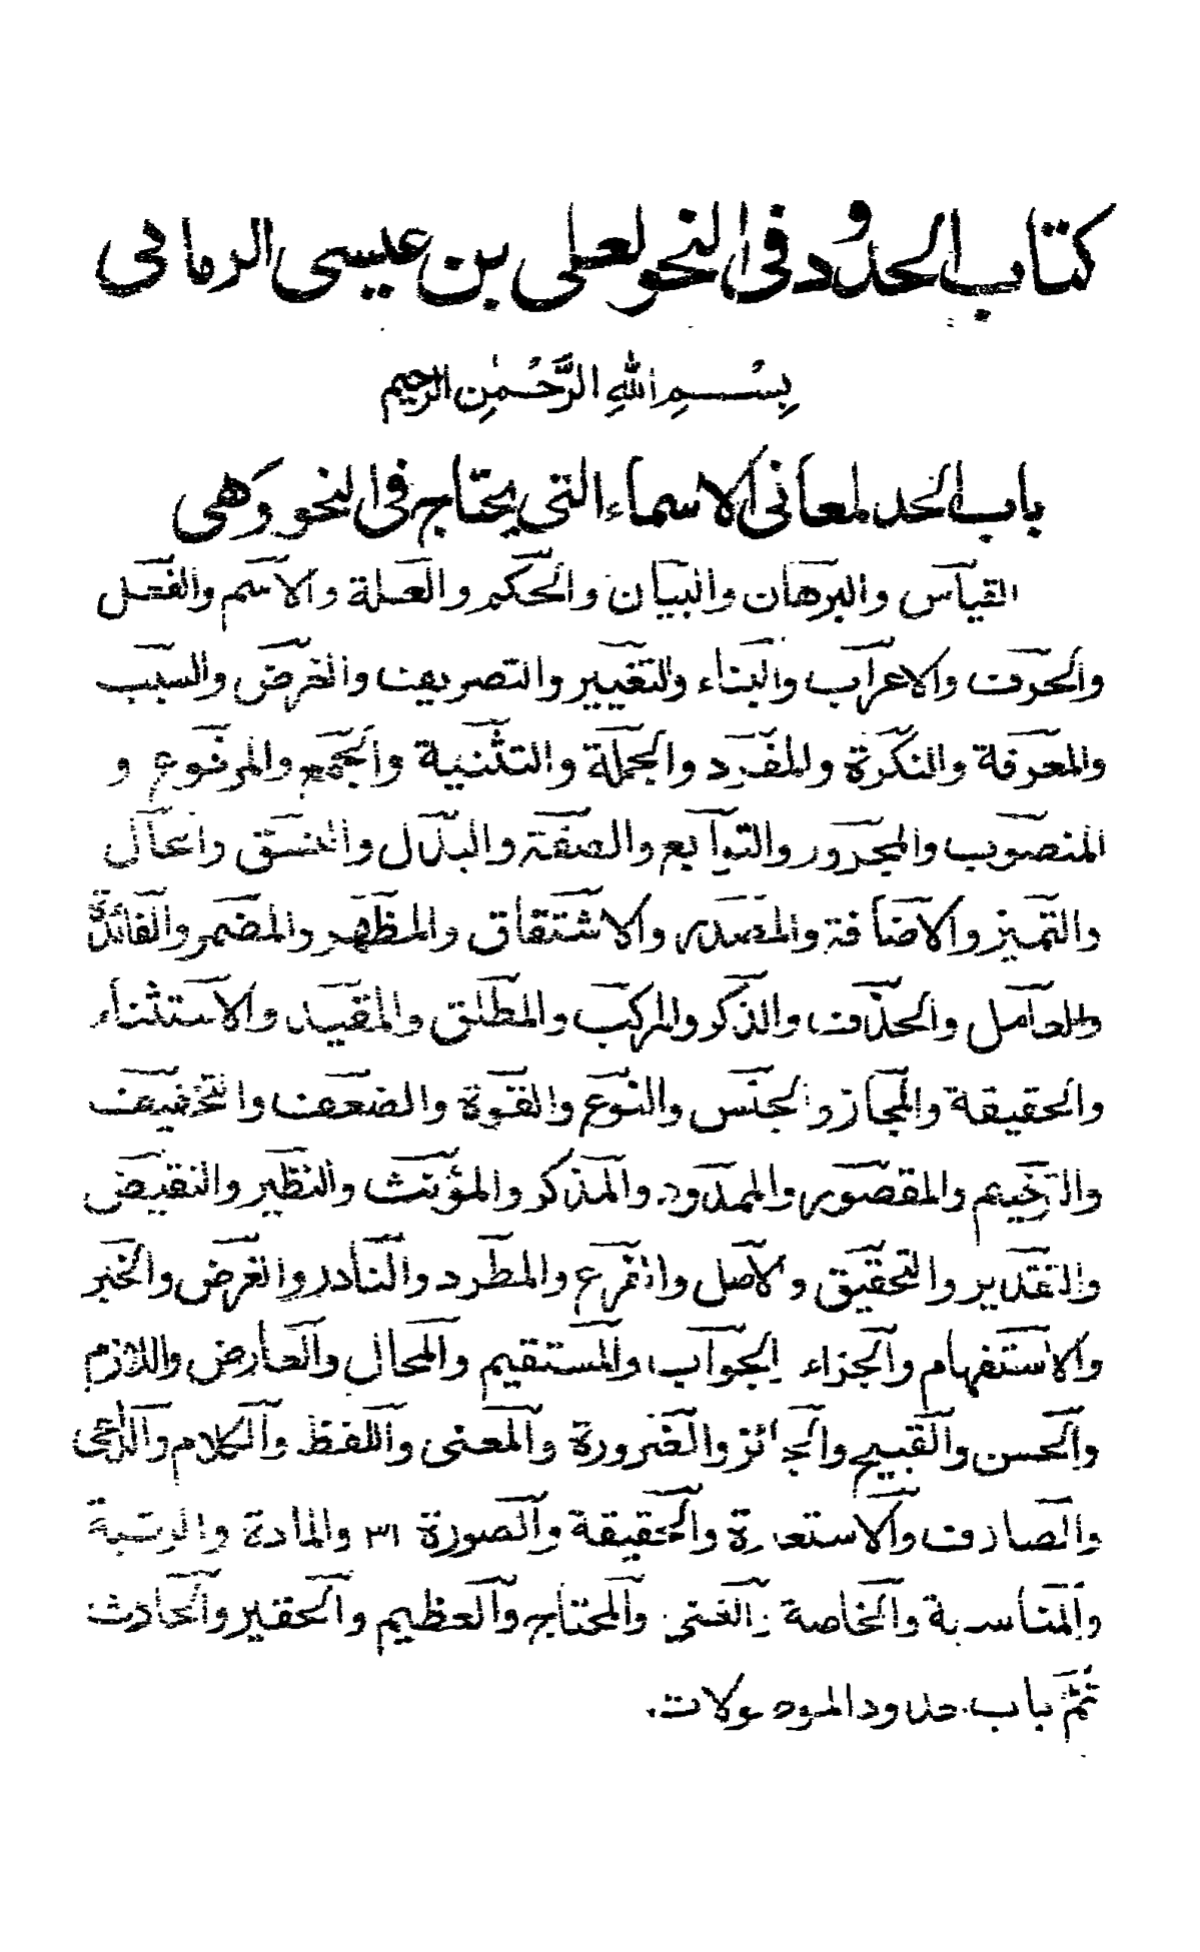 كتاب الحدود في النحو لعلى بن عيسى الرماني
بِسْمِ اللهِ الرَّحْمٰنِ الرحيم
باب الحد لمعاني الاسماء التي يحتاج في النحو وهي
القياس والبرهان والبيان والحكم والعلة والاسم والفعل
والحرف والاعراب والبناء والتغيير والتصريف والغرض والسبب
والمعرفة والنكرة والمفرد والجملة والتثنية والجمع والمرفوع و
المنصوب والمجرور والتوابع والصفة والبدل والنسق والحال
والتميز والاضافة والمصدر والاشتقاق والمظهر والمضمر والفائدة
والعامل والحذف والذكر والمركب والمطلق والمقيد والاستثناء
والحقيقة والمجاز والجنس والنوع والقوة والضعف والتخفيف
والترخيم والمقصور والممدود والمذكر والمؤنث والنظير والنقيض
والتقدير والتحقيق والاصل والفرع والمطرد والنادر والغرض والخبر
والاستفهام والجزاء الجواب والمستقيم والمحال والعارض واللازم
والحسن والقبيح والجائز والضرورة والمعنى واللفظ والكلام والداعى
والصارف والاستعارة والحقيقة والصورة ٣١ والمادة والرتبة
والمناسبة والخاصة والغنى والمحتاج والعظيم والحقير والحادث
ثمّ باب حدود الموصولات.